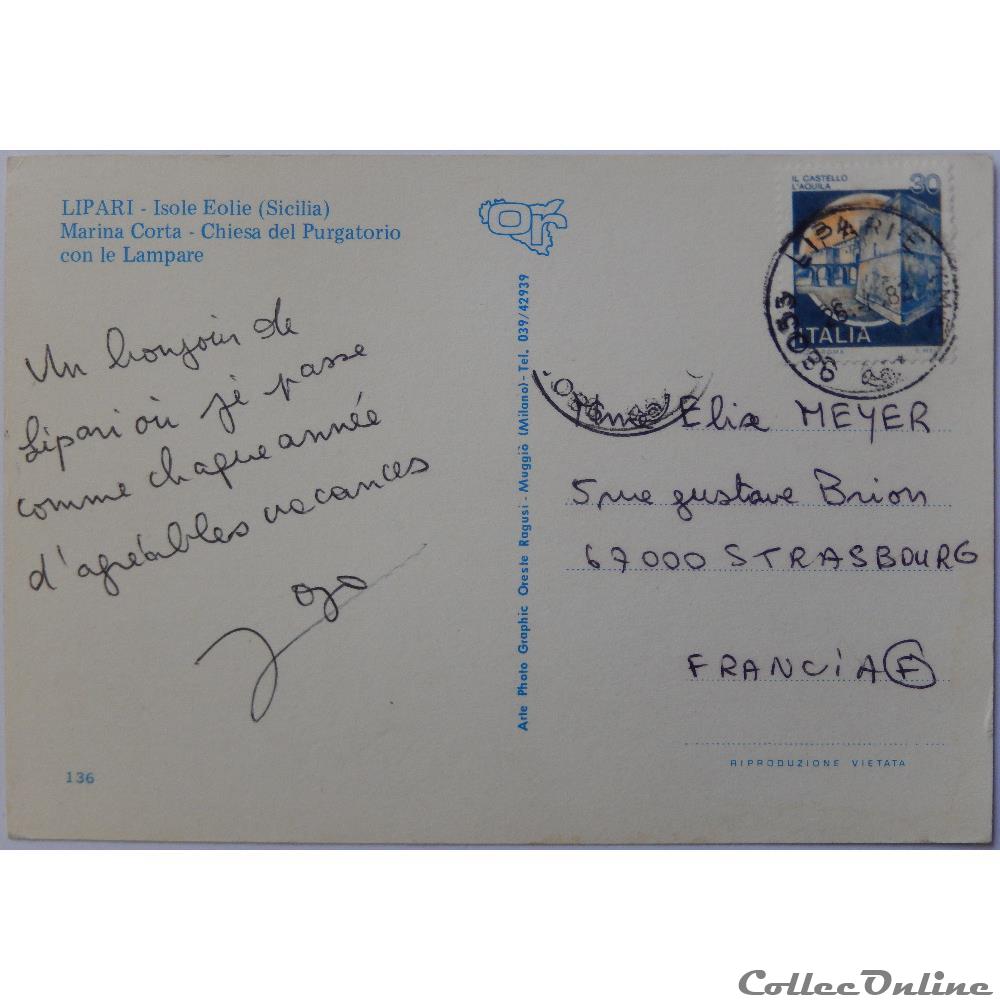 LIPARI - Isole Eolie (Sicilia)
Marina Corta - Chiesa del Purgatorio
con le Lampare
Un bonjour de
Lipari où je passe
comme chaque année
d'agréables vacances
136
or
Arte Photo Graphic Oreste Ragusi - Muggiò (Milano) - Tel. 039/42939
IL CASTELLO
L'AQUILA
30
ITALIA
ROMA
98053 LIPARI
Mme Elise MEYER
5 rue gustave Brion
67000 STRASBOURG
FRANCIA F
RIPRODUZIONE VIETATA
CollecOnline